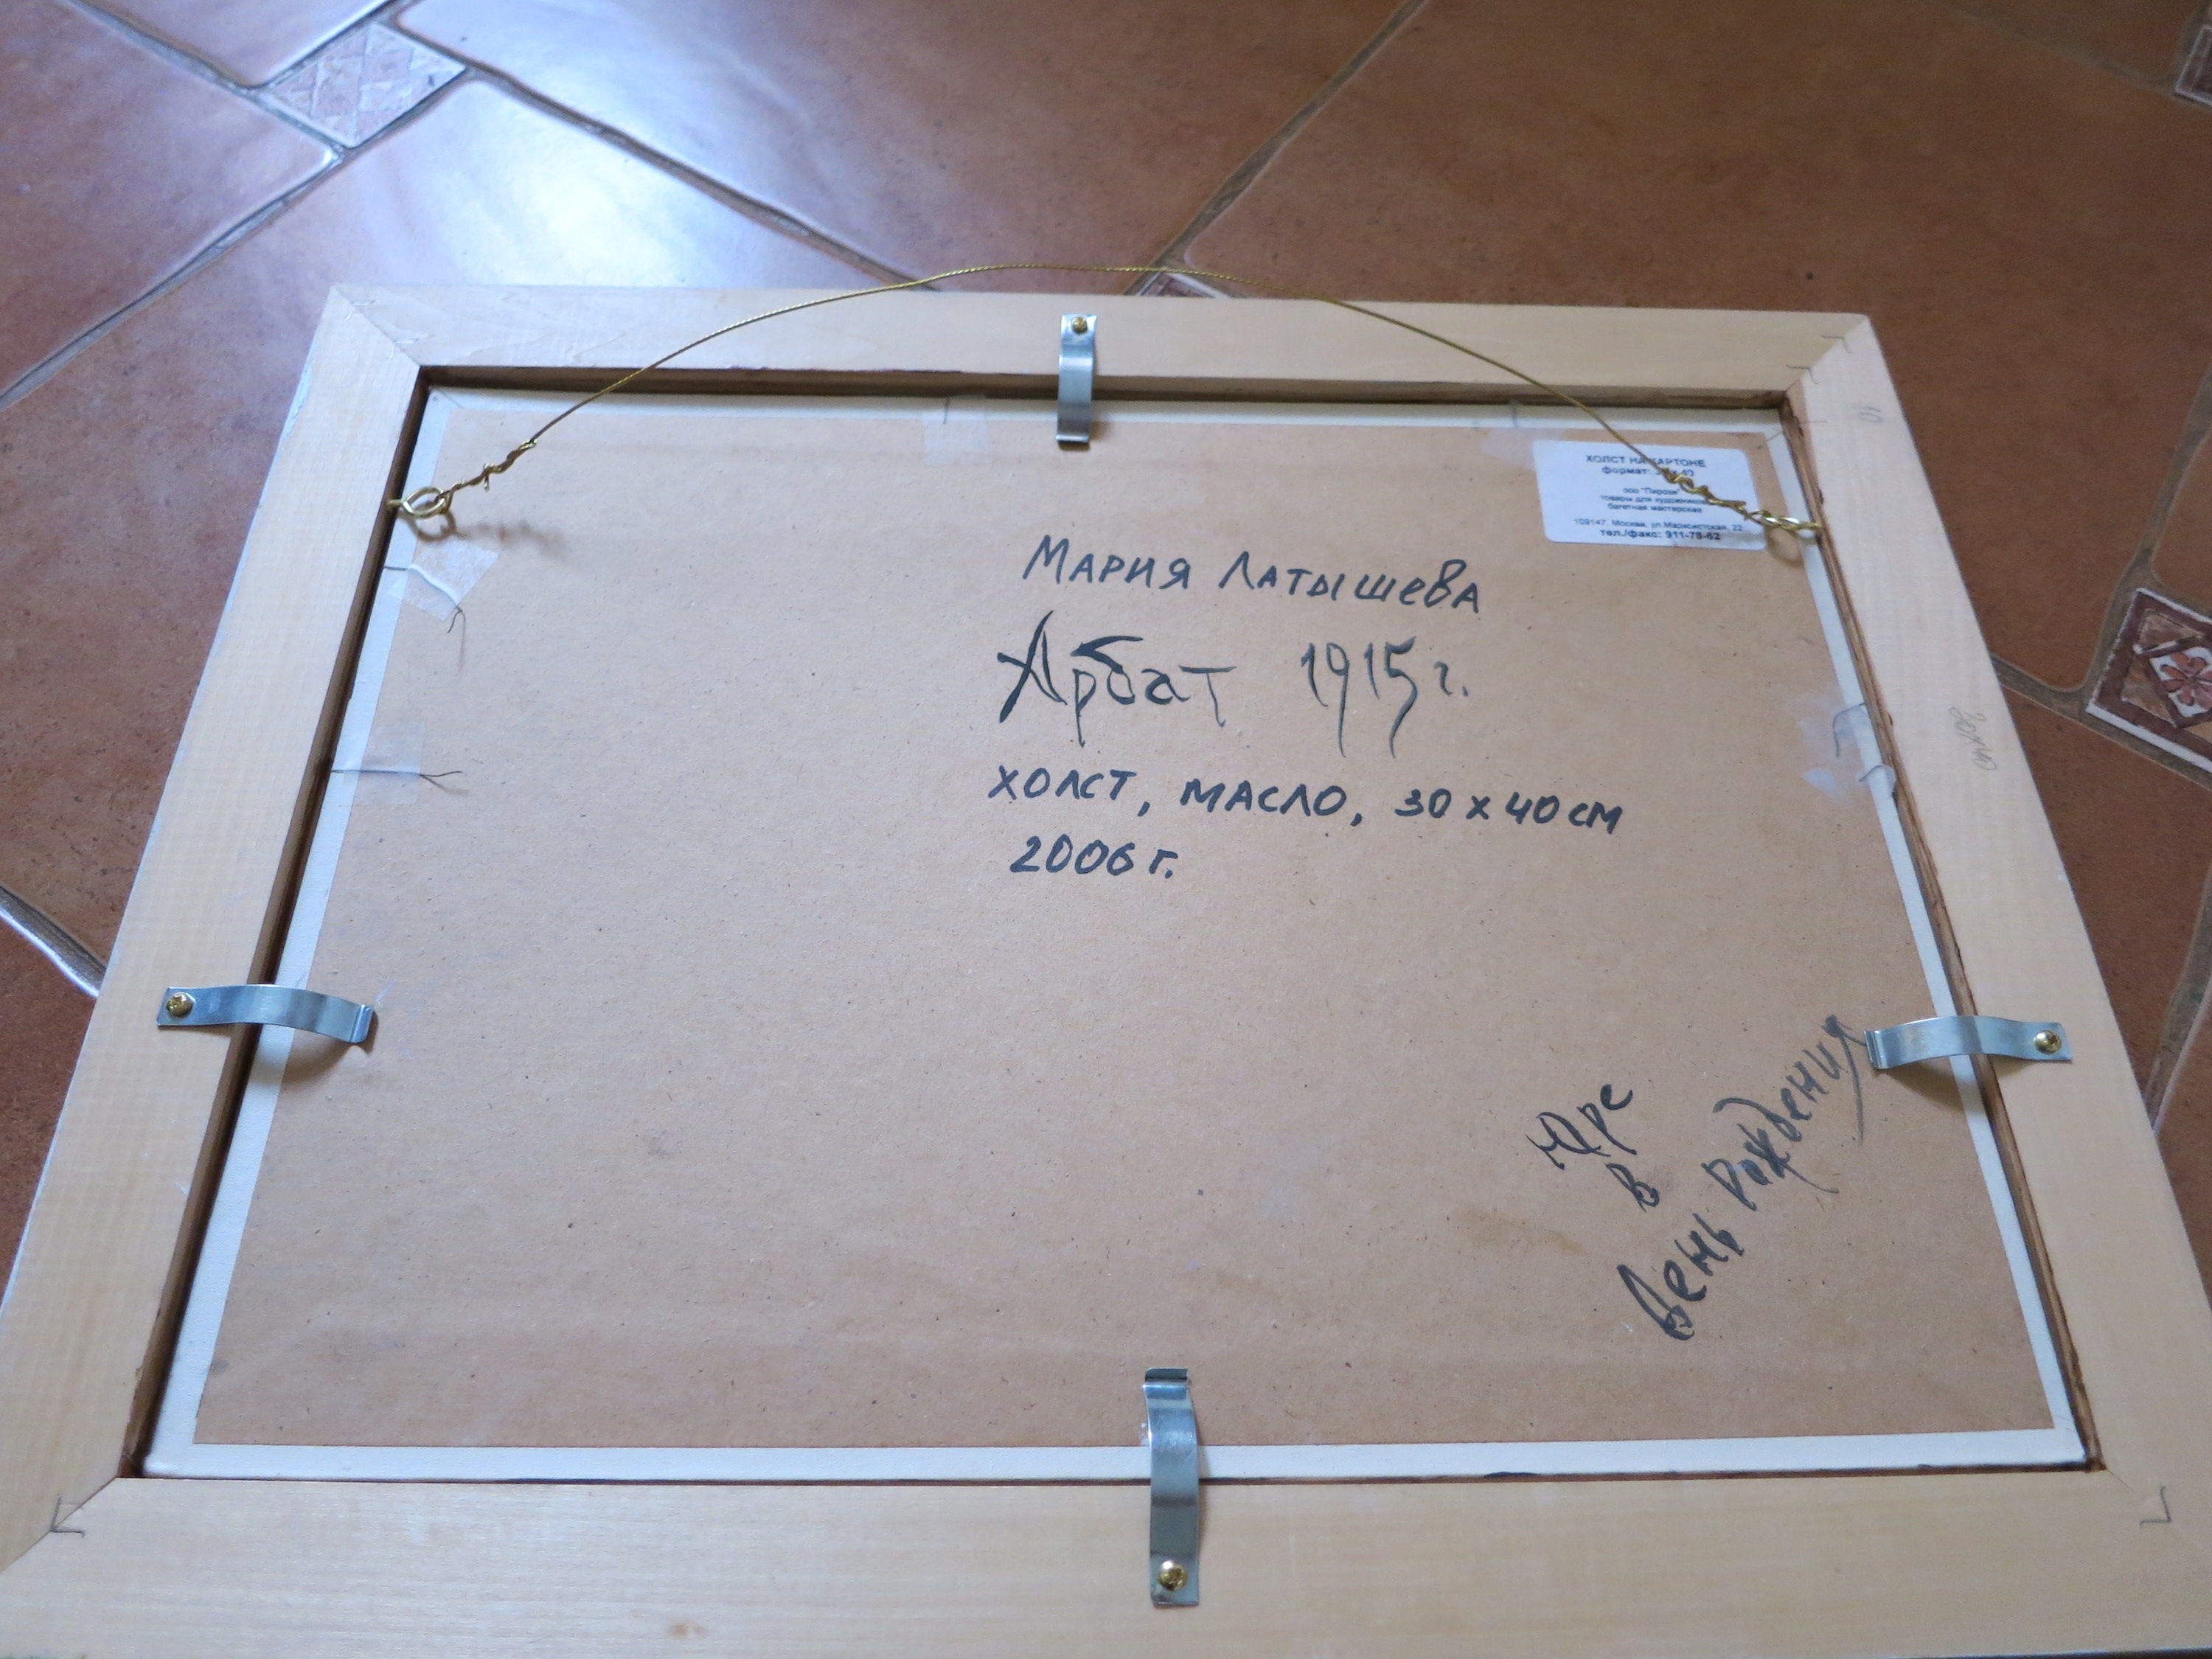 ХОЛСТ НА КАРТОНЕ
формат: 40
ооо "Пирози"
товары для художников
багетная мастерская
109147, Москва, ул.Марксистская, 22
тел./факс: 911-78-62
Мария Латышева
Арбат 1915 г.
холст, масло, 30 х 40 см
2006 г.
Юре
в
день рождения
10
30х40